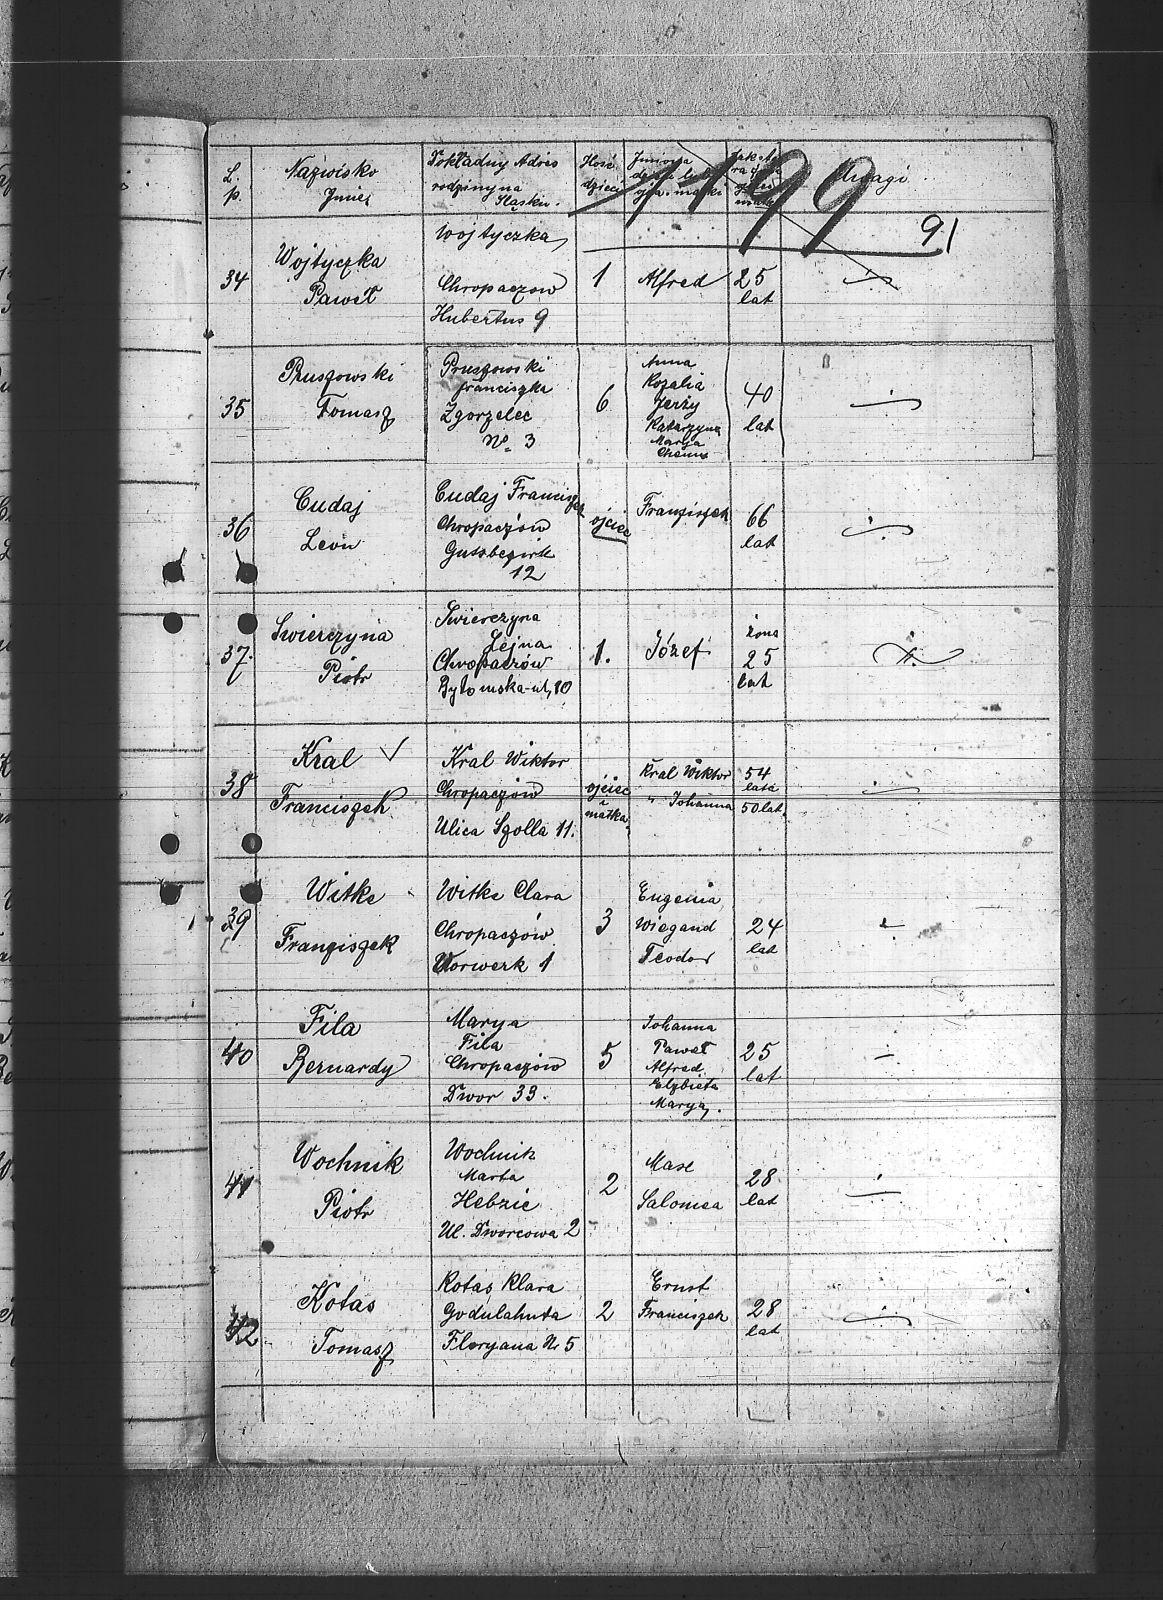 L.
p.
Nazwisko
Imię
Dokładny Adres
rodziny na
Śląsku.
Ilość
dzieci
Imiona
Uwagi
1199
91
34
Wojtyczka
Paweł
Wojtyczka
Chropaczow
Hubertus 9
1
Alfred
25
lat
35
Pruszowski
Tomasz
Pruszowski
Franciszka
Zgorzelec
No 3
6
Anna
Rozalia
Jerzy
Katarzyna
Marya
40
lat
36
Cudaj
Leon
Cudaj Franciszek
Chropaczów
Gutsbezirk
12
ojciec
Franziszek
66
lat
37.
Swierczyna
Piotr
Swierczyna
Chropaczów
Bytomska-ul, 10
1.
Józef
żona
25
lat
38
Kral
Franciszek
Kral Wiktor
Chropaczów
Ulica Szolla 11.
ojciec
i
matka
Kral Wiktor
" Johanna
54
lata
50 lat
39
Witke
Franziszek
Witke Clara
Chropaczów
Vorwerk 1
3
Eugenia
Wiegand
Teodor
24
lat
40
Fila
Bernardy
Marya
Fila
Chropaczów
Dwor 33.
5
Johanna
Paweł
Alfred
Elzbieta
Marya.
25
lat
41
Wochnik
Piotr
Wochnik
Marta
Hebzie
Ul. Dworcowa 2
2
Max
Salomea
28
lat
42
Kotas
Tomasz
Kotas Klara
Godulahuta
Floryana Nr 5
2
Ernst
Franciszek
28
lat